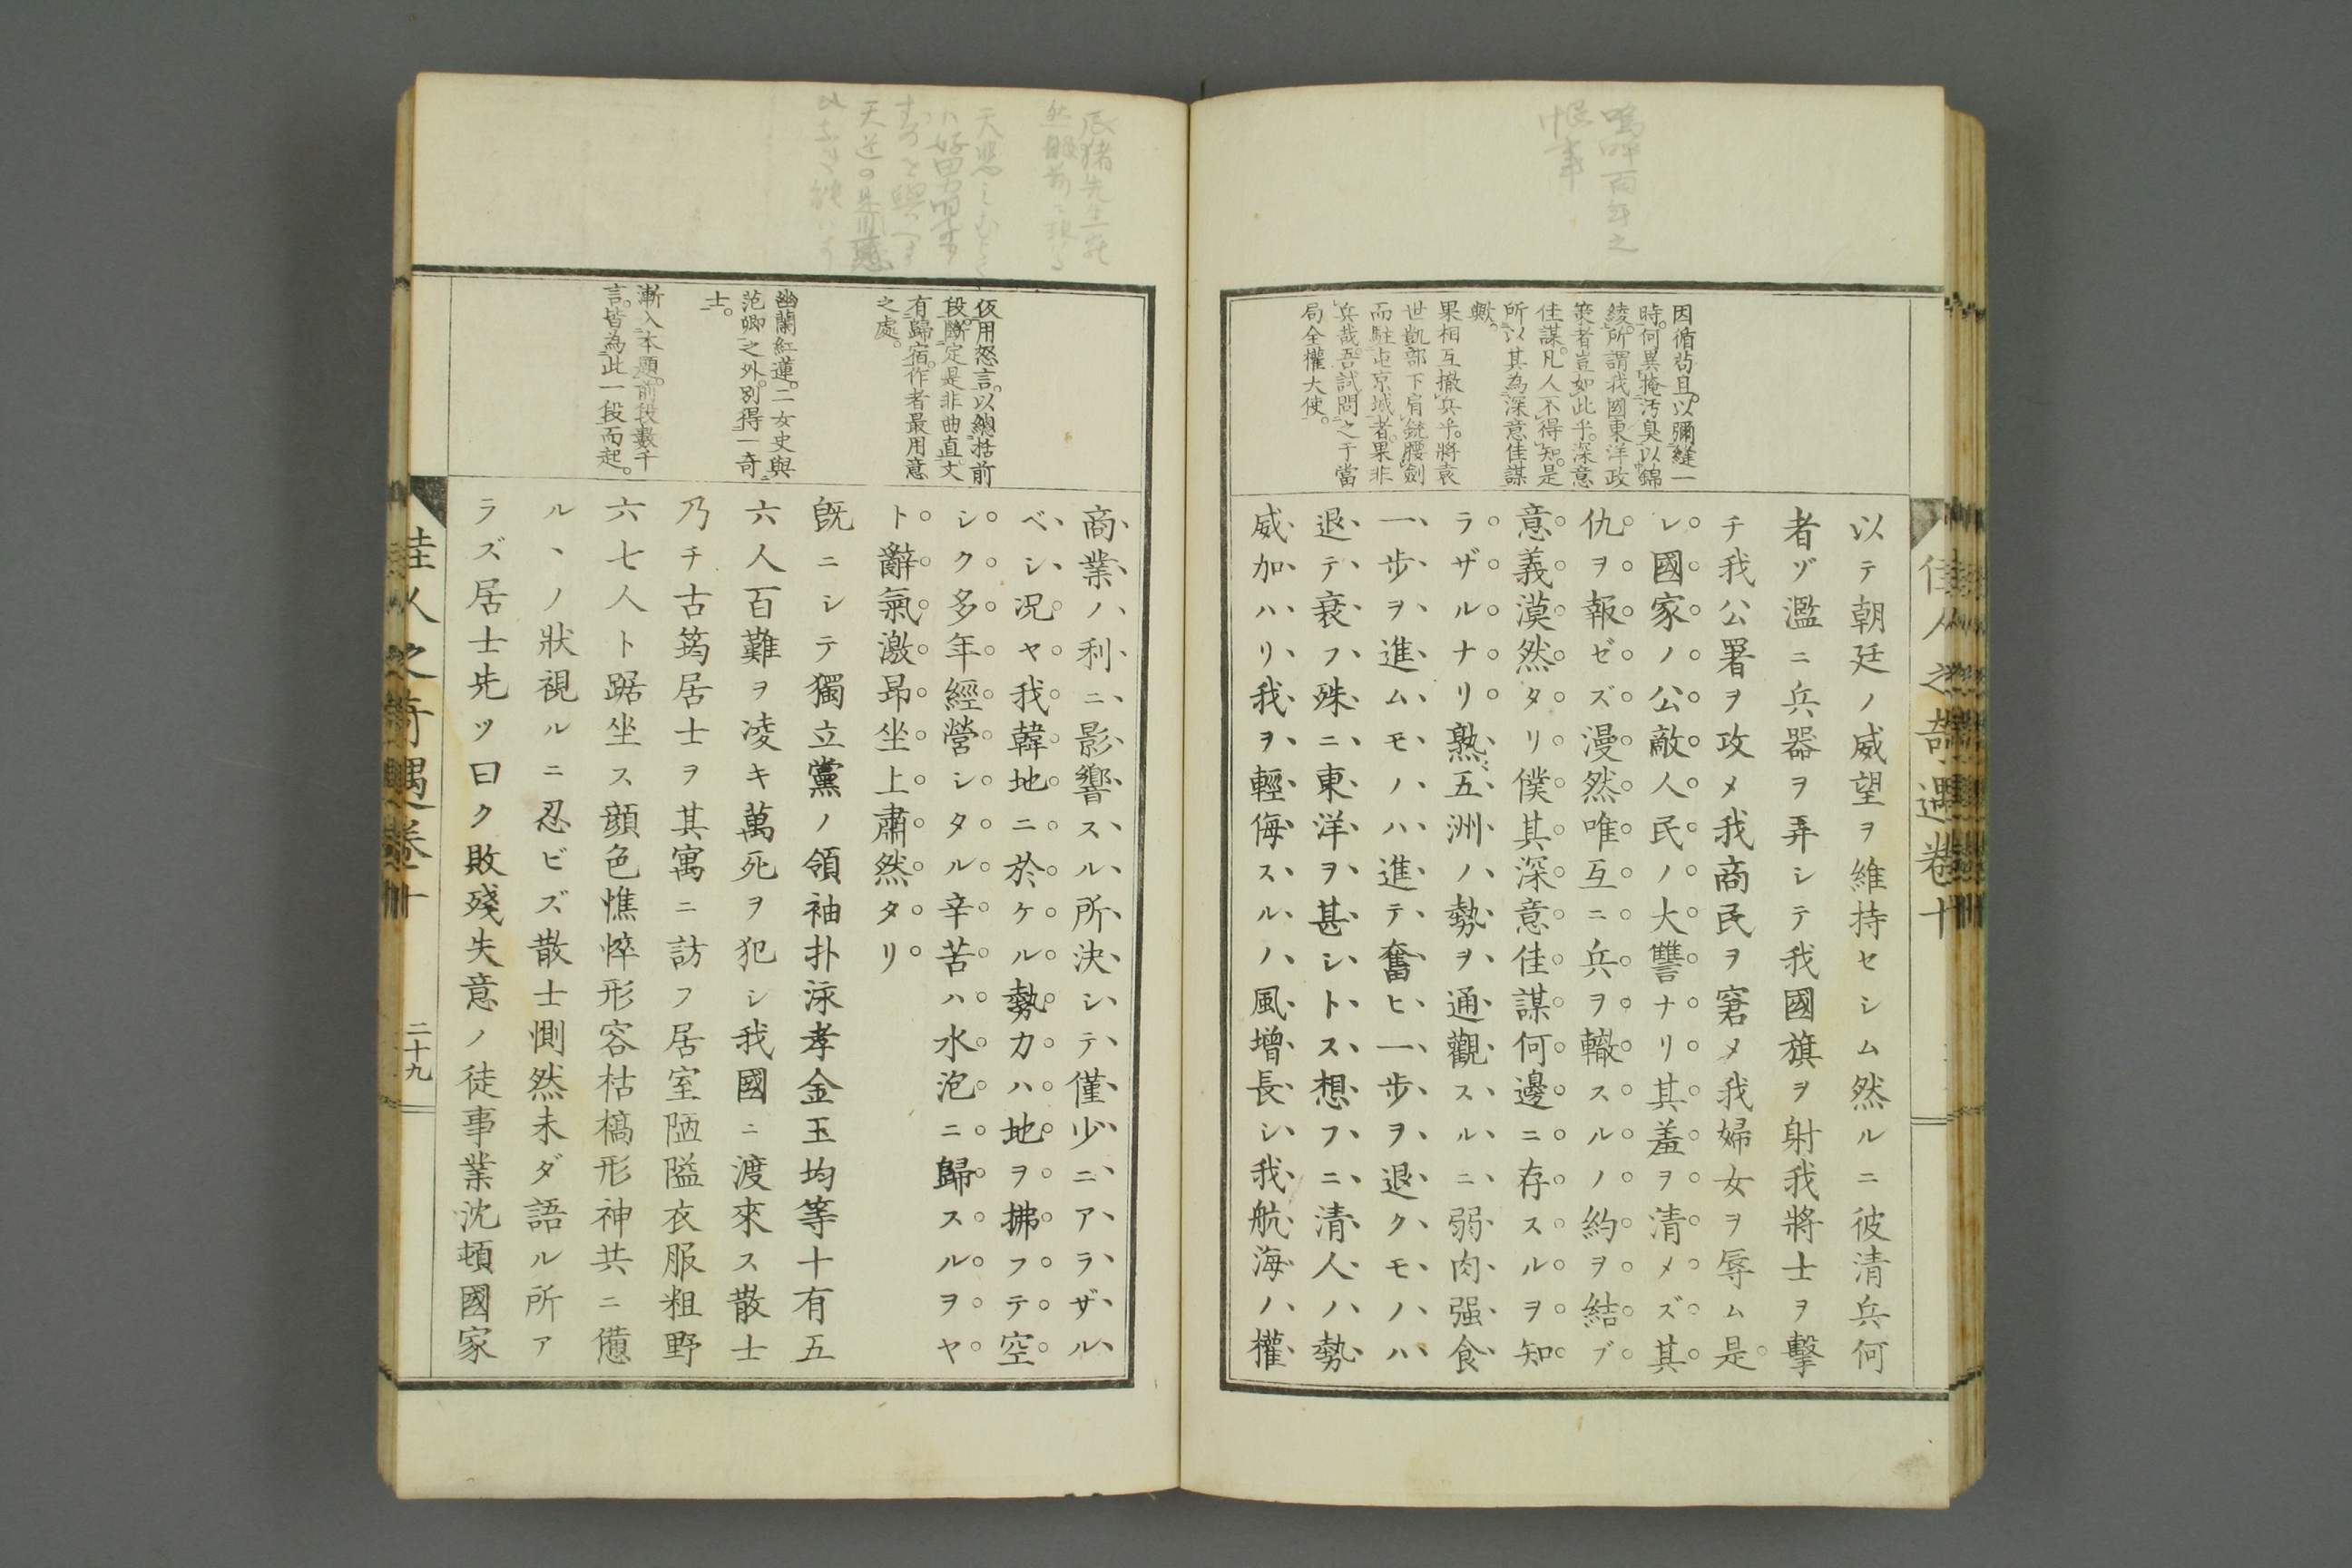 嗚呼百年之
恨事
因循苟且。以彌縫一
時。何異掩汚臭以錦
綾。所謂我國東洋政
策者豈如此乎。深意
佳謀。凡人不得知。是
所以其為深意佳謀
歟。
果相互撤兵乎。將袁
世凱部下肩銃腰劍
而駐屯京城者。果非
兵哉。吾試問之于當
局全權大使。
佳人之奇遇卷十
以テ朝廷ノ威望ヲ維持セシム然ルニ彼清兵何
者ゾ濫ニ兵器ヲ弄シテ我國旗ヲ射我將士ヲ擊
チ我公署ヲ攻メ我商民ヲ窘メ我婦女ヲ辱ム是
レ國家ノ公敵人民ノ大讐ナリ其羞ヲ清メズ其
仇ヲ報ゼズ漫然唯互ニ兵ヲ轍スルノ約ヲ結ブ
意義漠然タリ僕其深意佳謀何邊ニ存スルヲ知
ラザルナリ熟〻五洲ノ勢ヲ通觀スルニ弱肉强食
一步ヲ進ムモノハ進テ奮ヒ一步ヲ退クモノハ
退テ衰フ殊ニ東洋ヲ甚シトス想フニ清人ノ勢
威加ハリ我ヲ輕侮スルノ風增長シ我航海ノ權
辰猪先生
天悲
仮用怒言。以總括前
段。斷定是非曲直。文
有歸宿。作者最用意
之處。
幽蘭紅蓮。二女史與
范卿之外。別得一奇
士。
漸入本題。前段數千
言。皆為此一段而起。
商業ノ利ニ影響スル所決シテ僅少ニアラザル
ベシ况ヤ我韓地ニ於ケル勢力ハ地ヲ拂フテ空
シク多年經營シタル辛苦ハ水泡ニ歸スルヲヤ
ト辭氣激昻坐上肅然タリ
旣ニシテ獨立黨ノ領袖扑泳孝金玉均等十有五
六人百難ヲ凌キ萬死ヲ犯シ我國ニ渡來ス散士
乃チ古筠居士ヲ其寓ニ訪フ居室陋隘衣服粗野
六七人ト踞坐ス顔色憔悴形容枯槁形神共ニ憊
ル丶ノ狀視ルニ忍ビズ散士惻然未ダ語ル所ア
ラズ居士先ツ曰ク敗殘失意ノ徒事業沈頓國家
佳人之奇遇卷十
二十九